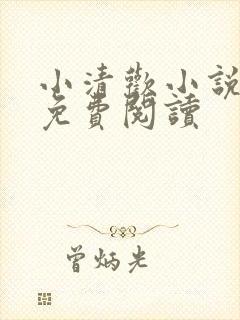 小清歡小說
免費閱讀
曾炳光